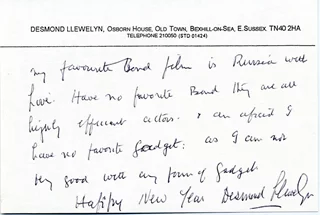 DESMOND LLEWELYN, OSBORN HOUSE, OLD TOWN, BEXHILL-ON-SEA, E. SUSSEX. TN40 2HA
TELEPHONE 210050 (STD 01424)
my favourite Bond film is Russia with
Love. Have no favorite Bond they are all
highly efficient actors. I am afraid I
have no favorite Gadget: as I am not
very good with any form of Gadget
Happy New Year Desmond Llewelyn